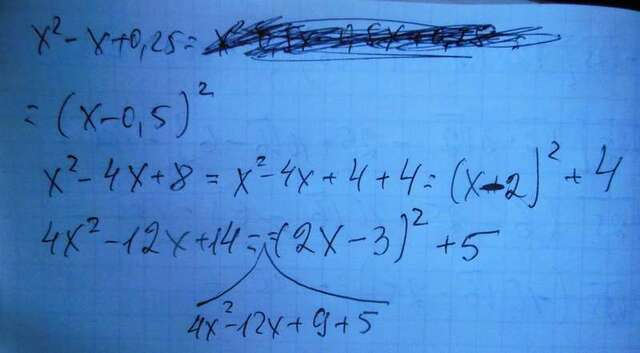 x² - x + 0,25 =
= (x - 0,5)²
x² - 4x + 8 = x² - 4x + 4 + 4 = (x - 2)² + 4
4x² - 12x + 14 = (2x - 3)² + 5
4x² - 12x + 9 + 5